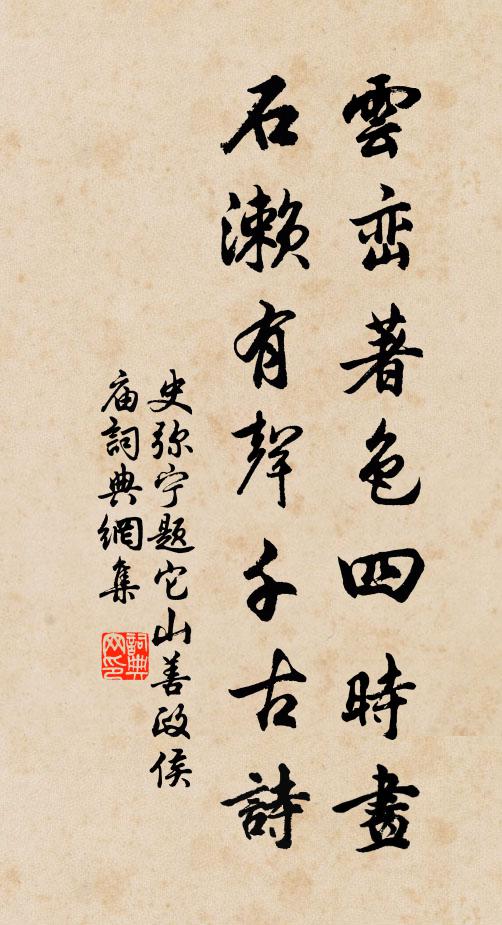 雲峦著色四時畫
石濑有聲千古詩
史弥宁题它山善政侯
庙詞典網集
詞典网印